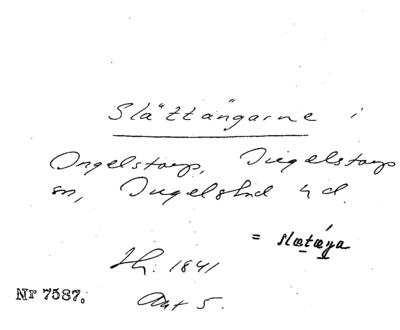 Slättängarne i
Ingelstorp, Ingelstorps
sn, Ingelstad hd.
= slætæŋa
Ht. 1841
Akt 5.
Nr 7587.